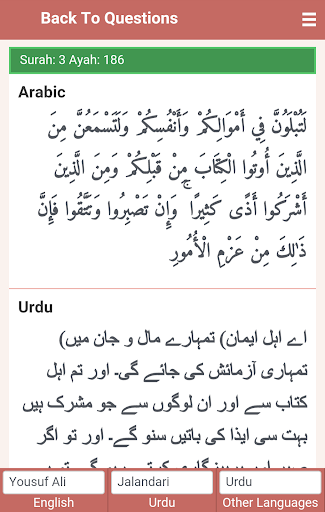 Back To Questions
Surah: 3 Ayah: 186
Arabic
لَتُبْلَوُنَّ فِي أَمْوَالِكُمْ وَأَنْفُسِكُمْ وَلَتَسْمَعُنَّ مِنَ
الَّذِينَ أُوتُوا الْكِتَابَ مِنْ قَبْلِكُمْ وَمِنَ الَّذِينَ
أَشْرَكُوا أَذًى كَثِيرًا ۚ وَإِنْ تَصْبِرُوا وَتَتَّقُوا فَإِنَّ
ذَٰلِكَ مِنْ عَزْمِ الْأُمُورِ
Urdu
اے اہل ایمان) تمہارے مال و جان میں)
تمہاری آزمائش کی جائے گی۔ اور تم اہل
کتاب سے اور ان لوگوں سے جو مشرک ہیں
بہت سی ایذا کی باتیں سنو گے۔ اور تو اگر
Yousuf Ali
Jalandari
Urdu
English
Urdu
Other Languages